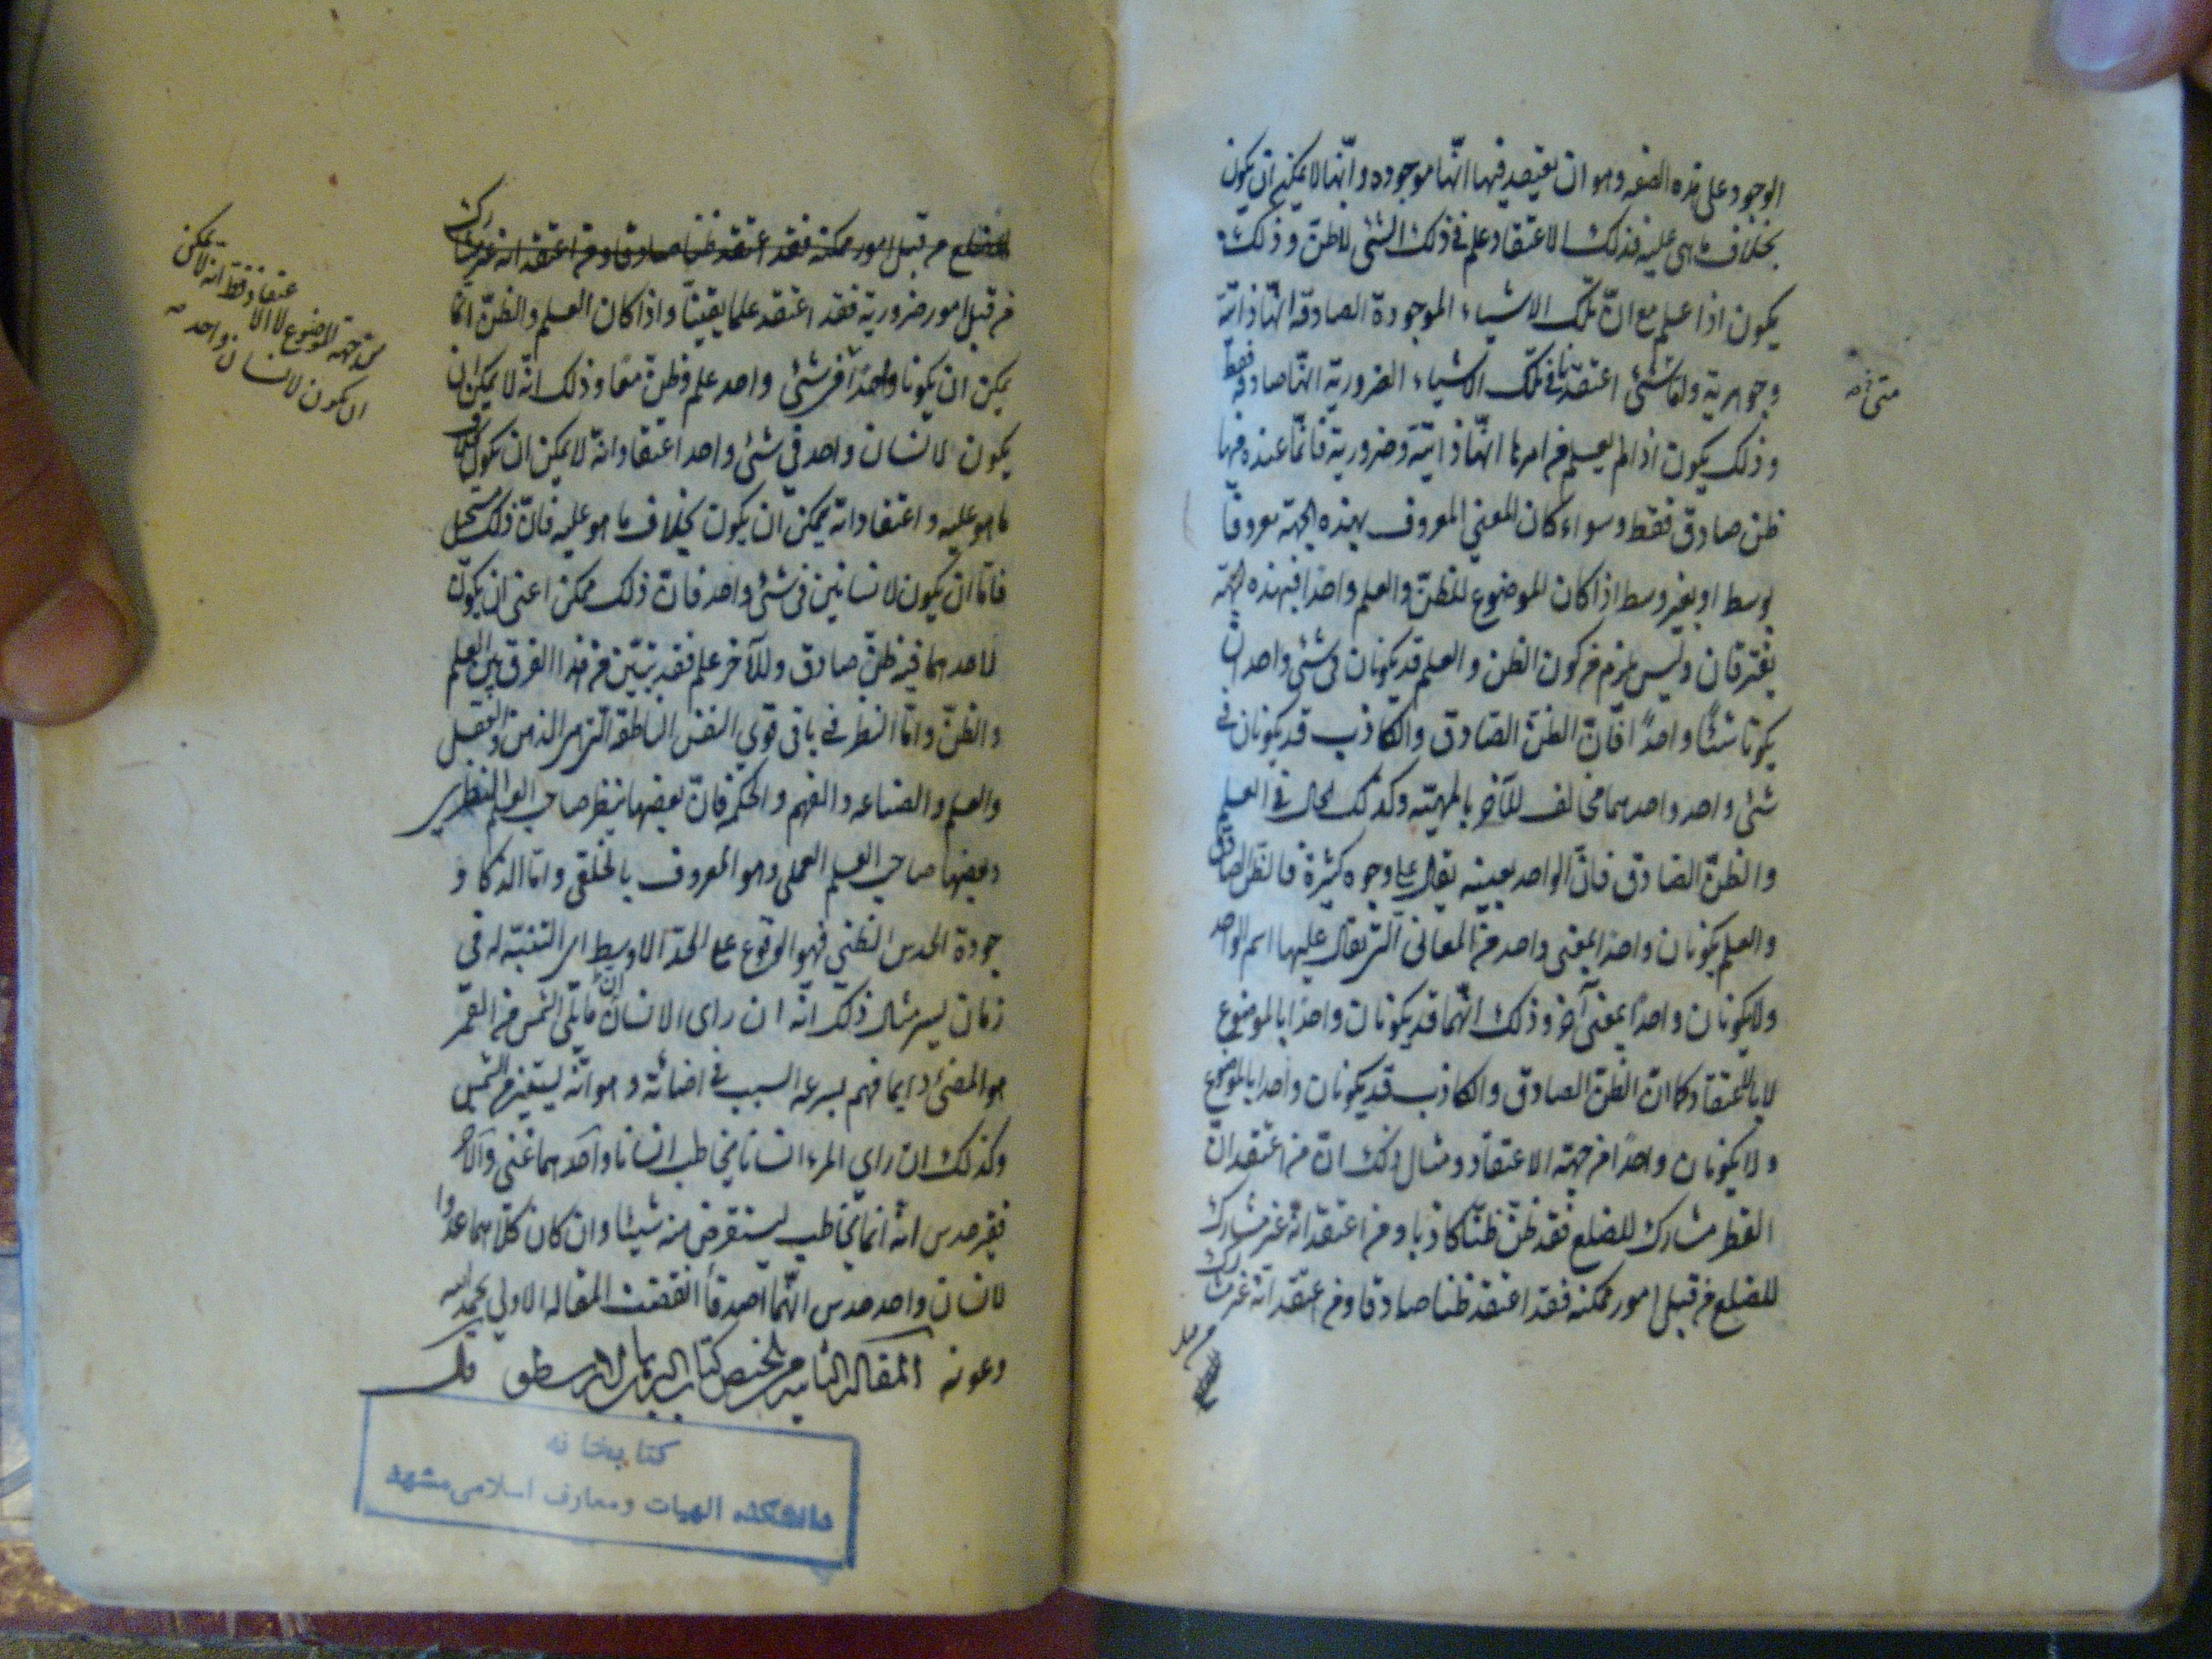 الوجود على هذه الصفه وهو ان يعتقد فيها انّها موجوده وانّها لا يمكن ان يكون
بخلاف ما هى عليه فذلك الاعتقاد علم فى ذلك الشئ لا ظنّ وذلك
يكون اذا علم مع انّ تلك الاشياء الموجودة الصادقه انّها ذاتية
وجوهرية ولما شئ اعتقدنا فى تلك الاشياء الضرورية انّها صادقه فقط
متى فى صه
وذلك يكون اذا لم يعلم من امرها انّها ذاتيّة وضرورية فانّما عنده فيها
ظن صادق فقط وسواء كان المعنى المعروف بهذه الجهة معروفا
بوسط او بغير وسط اذا كان الموضوع للظنّ والعلم واحدا فبهذه الجهة
يفترقان وليس يلزم من كون الظن والعلم قد يكونان فى شئ واحد ان
يكونا شيئا واحدًا فانّ الظنّ الصّادق والكاذب قد يكونان فى
شئ واحد واحدهما مخالف للآخر بالمهيّته وكذلك الحال فى العلم
والظنّ الصّادق فانّ الواحد بعينه يقال على وجوه كثيرة فالظن الصادق
والعلم يكونان واحدا بمعنى واحد من المعانى التى يقال عليها اسم الواحد
ولا يكونان واحدًا بمعنى آخر وذلك انّهما قد يكونان واحدًا بالموضوع
لا بالاعتقاد كما انّ الظنّ الصادق والكاذب قد يكونان واحدا بالموضوع
ولا يكونان واحدًا من جهته الاعتقاد ومثال ذلك انّ من اعتقد انّ
القطر مشارك للضلع فقد ظنّ ظنّا كاذبا ومن اعتقد انّه غير مشارك
للضلع من قبل امور ممكنه فقد اعتقد ظنا صادقا ومن اعتقد انّه غير مشارك
للضلع من قبل امور ممكنه فقد اعتقد ظنا صادقا ومن اعتقد انه غير مشارك
من قبل امور ضرورية فقد اعتقد علما يقينّا واذا كان العلم والظنّ انّما
يمكن ان يكونا واحدًا فى شئ واحد علم وظنّ معًا وذلك انّه لا يمكن ان
من جهة الموضوع لا الاعتقاد فقط انه لا يمكن
ان يكون لانسان واحد صه
يكون لانسان واحد فى شئ واحد اعتقاد انّه لا يمكن ان يكون بخلاف
ما هو عليه واعتقاد انّه يمكن ان يكون بخلاف ما هو عليه فانّ ذلك مستحيل
فامّا ان يكون لانسانين فى شئ واحد فانّ ذلك ممكن اعنى ان يكون
لاحدهما فيه ظنّ صادق وللآخر علم فقد تبيّن من هذا الفرق بين العلم
والظنّ وامّا النظر فى باقى قوى النفس الناطقه التى هى الذهن والعقل
والعلم والصناعه والفهم والحكمه فانّ بعضها ينظر صاحب العلم النظرى
وبعضها صاحب العلم العملى وهو المعروف بالخلقى وامّا الذكاء و
جودة الحدس الظنى فهو الوقوع على الحدّ الاوسط اى التنبّه له فى
زمان يسير مثال ذلك انّه ان راى الانسان انّ ما يلى الشمس من القمر
هو المضئ دايما فهم بسرعه السبب فى اضائته وهو انّه يستنير من الشمس
وكذلك ان راى المرء انسانا يخاطب انسانا واحدهما غنى والآخر
فقير حدس انّه انّما يخاطب ليستقرض منه شيئا وان كان كلاهما عدوا
لانسان واحد حدس انّهما اصدقا انقضت المقاله الاولى بحمد الله
وعونه المقاله الثانيه من تلخيص كتاب البرهان لارسطو قال
كتابخانه
دانشکده الهیات ومعارف اسلامی مشهد